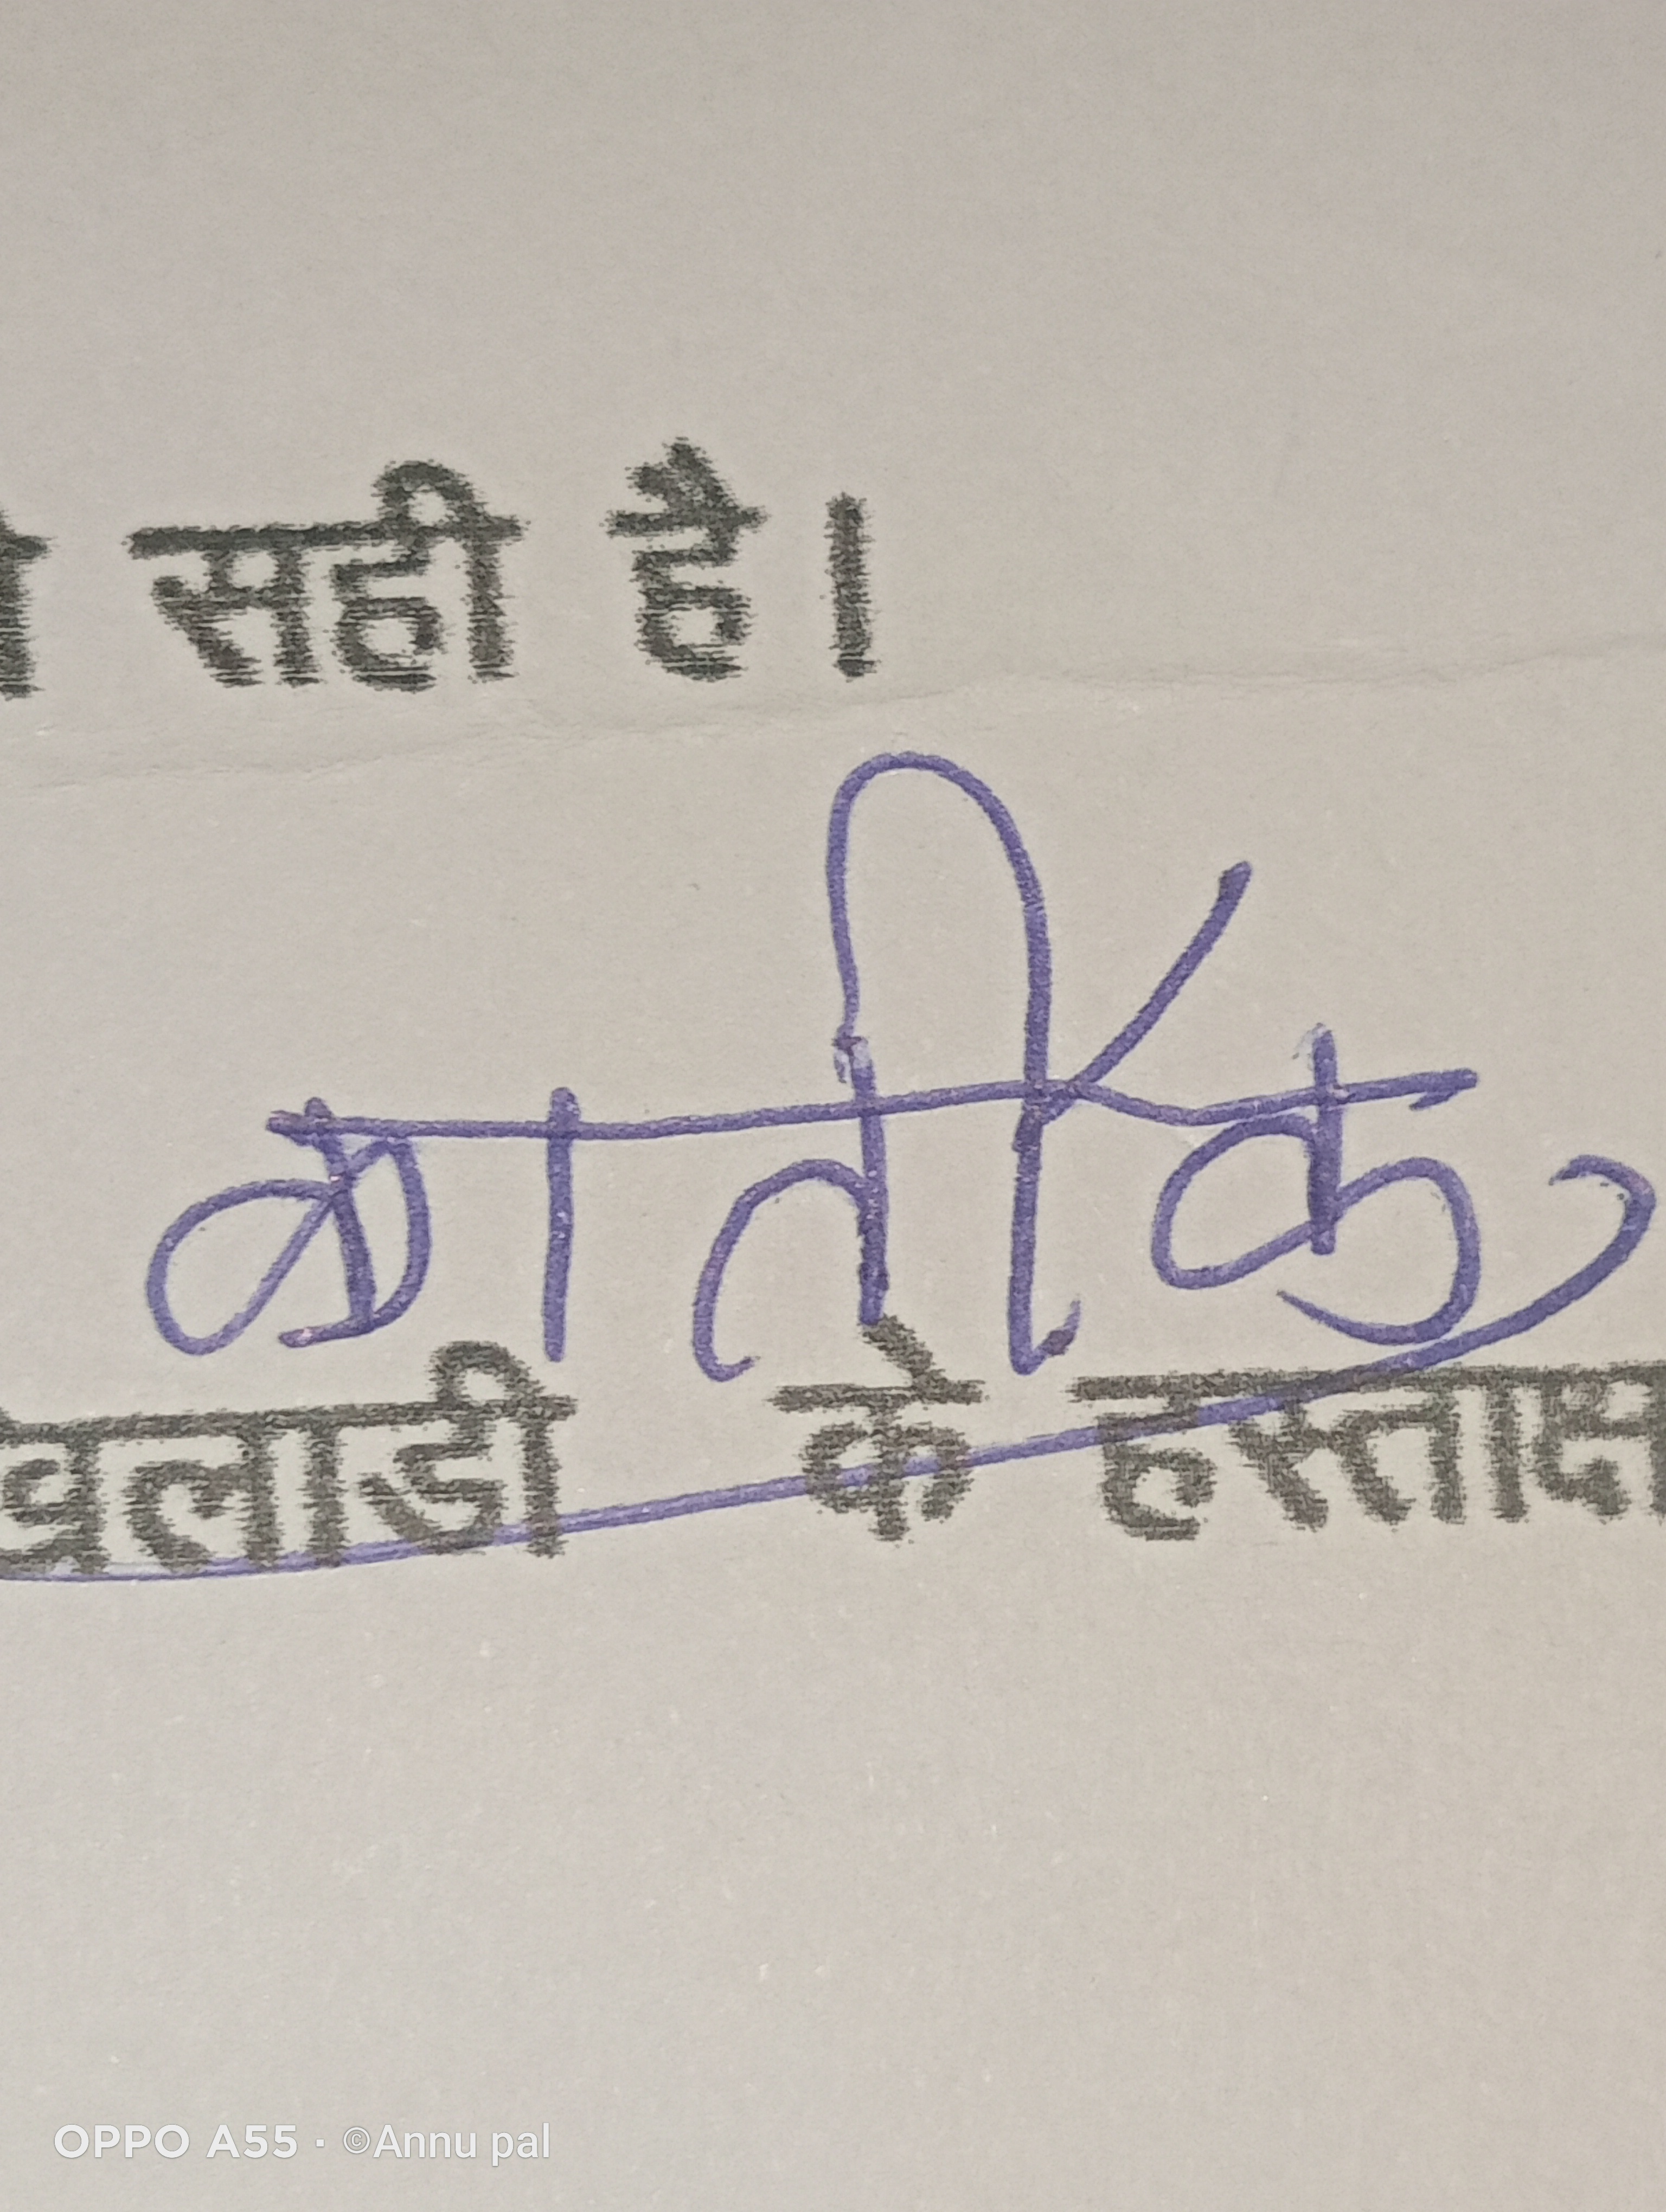 सही है।
कार्तिक
खिलाडी के हस्ताक्ष
OPPO A55 · ©Annu pal